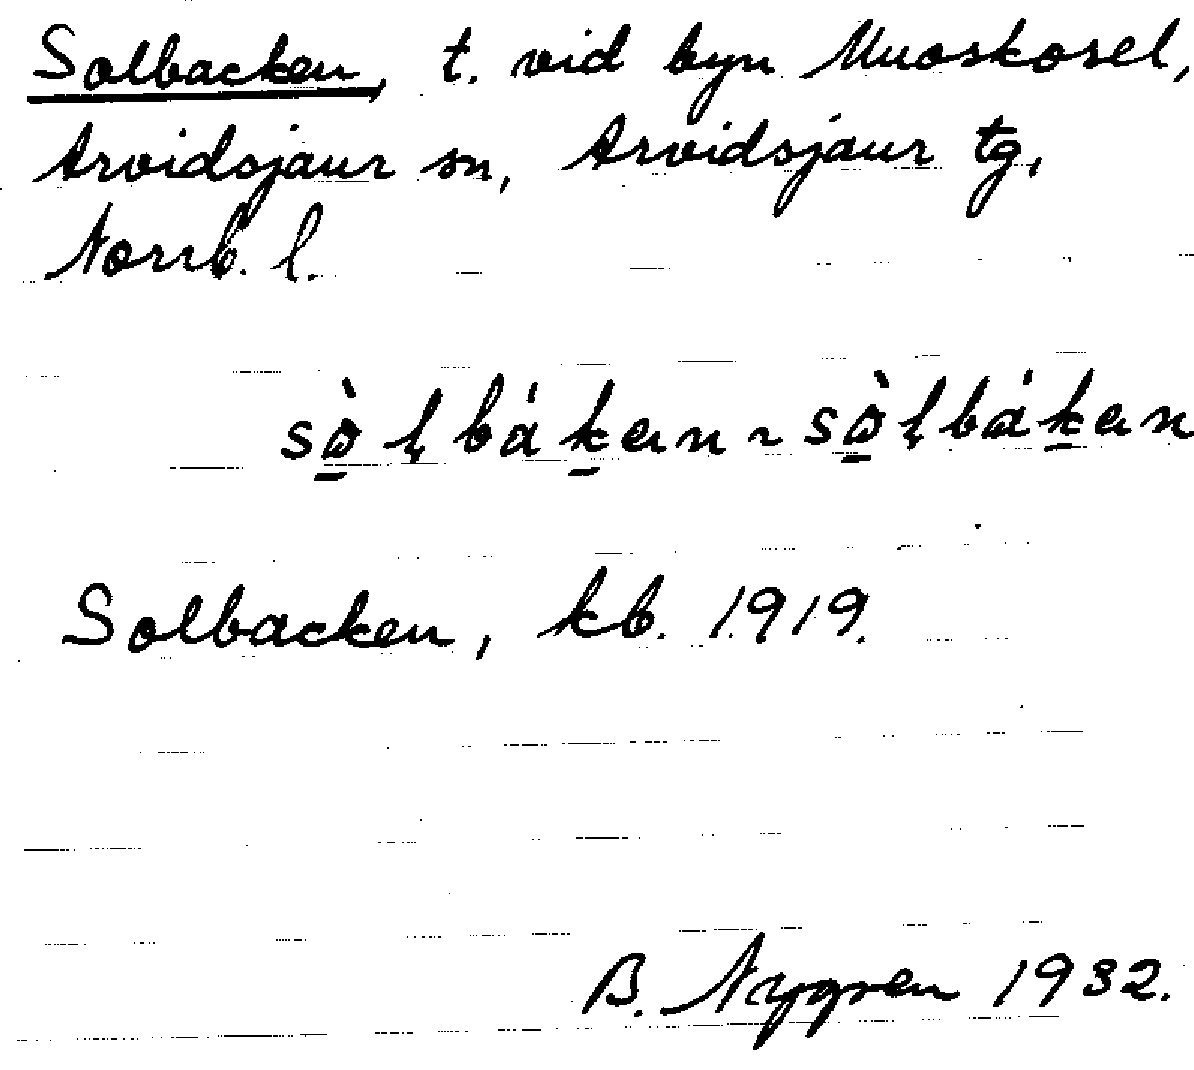 Solbacken, t. vid byn Muoskosel,
Arvidsjaur sn, Arvidsjaur tg,
Norrb. l.
sò̱ļbáḵen ~ sò̱ļbáḵen
Solbacken, kb. 1919.
B. Nygren 1932.